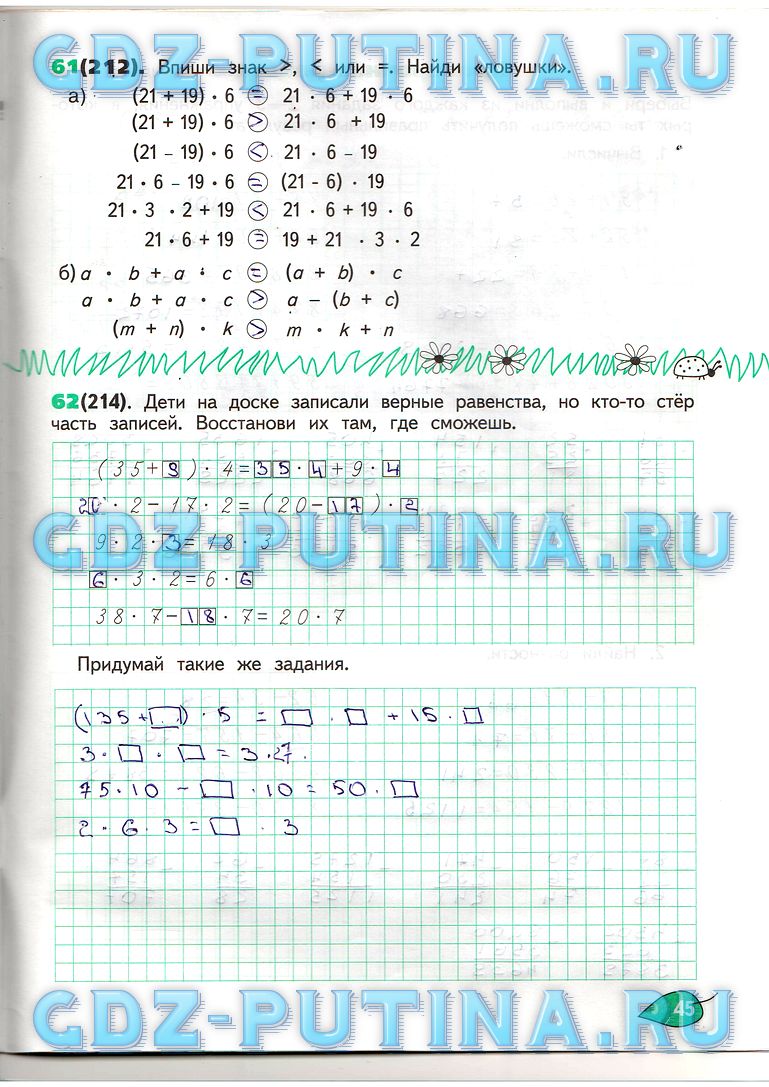 GDZ-PUTINA.RU
61(212). Впиши знак >, < или =. Найди «ловушки».
а) (21 + 19) · 6 = 21 · 6 + 19 · 6
(21 + 19) · 6 > 21 · 6 + 19
(21 – 19) · 6 < 21 · 6 – 19
21 · 6 – 19 · 6 = (21 - 6) · 19
21 · 3 · 2 + 19 < 21 · 6 + 19 · 6
21 · 6 + 19 = 19 + 21 · 3 · 2
б) a · b + a · c = (a + b) · c
a · b + a · c > a – (b + c)
(m + n) · k > m · k + n
62(214). Дети на доске записали верные равенства, но кто-то стёр
часть записей. Восстанови их там, где сможешь.
(35+9) · 4=35·4+9·4
20 · 2–17·2=(20–17)·2
GDZ-PUTINA.RU
9·2·3=18·3
6·3·2=6·6
38·7–18·7=20·7
Придумай такие же задания.
(135+□)·5 = □·□ + 15·□
3·□·□ = 3·27.
75·10 – □·10 = 50·□
2·6·3=□·3
45
GDZ-PUTINA.RU